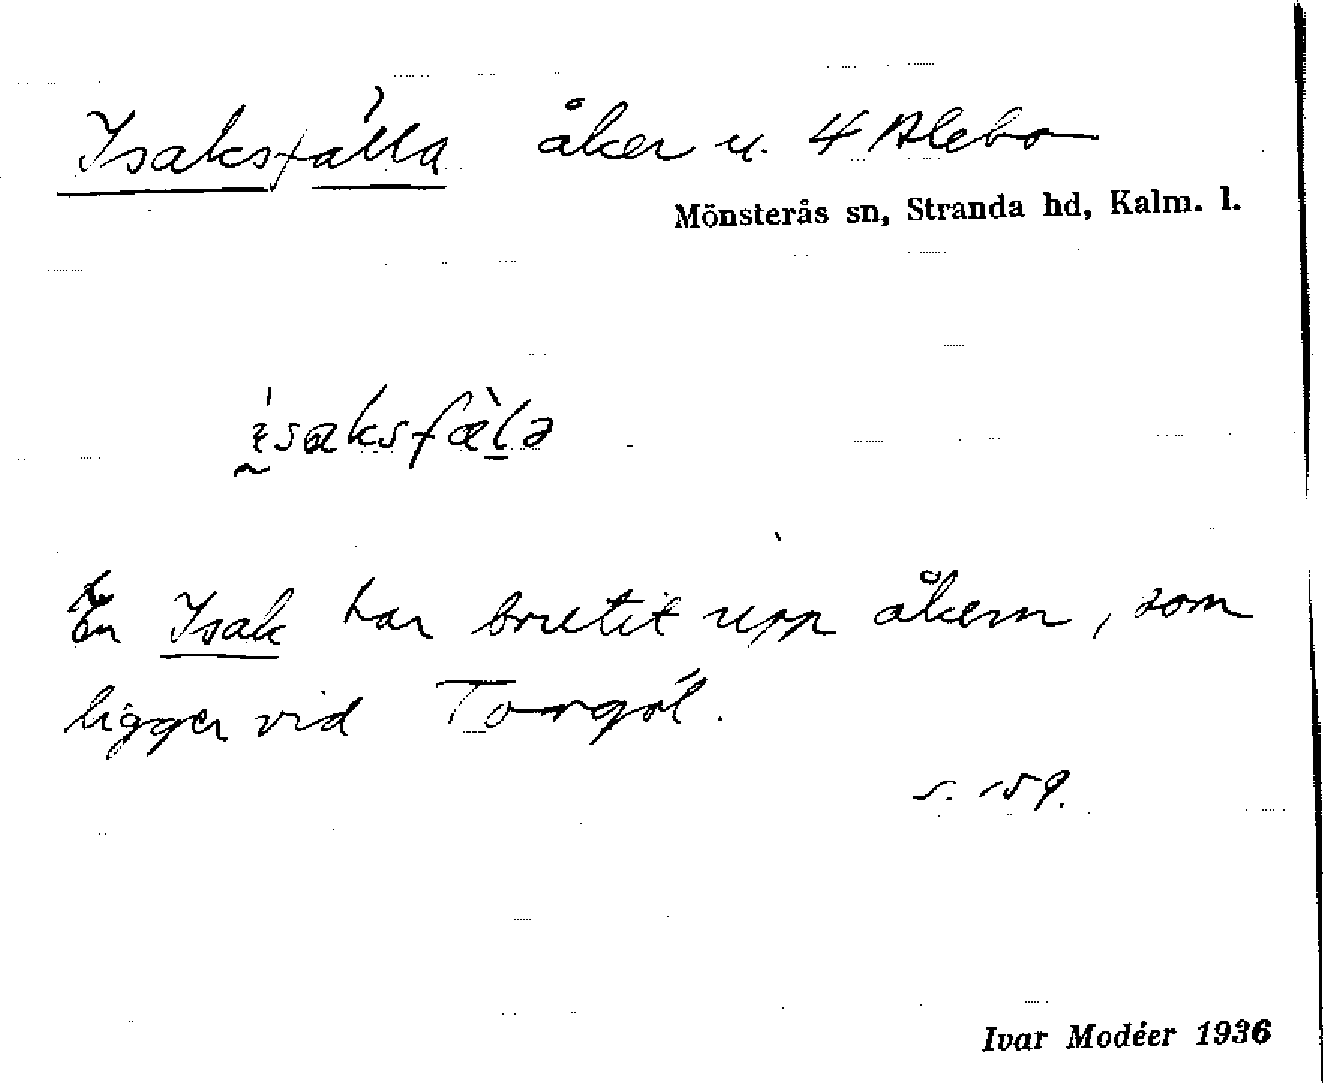 Isaksfälla åker u. 4 Alebo
Mönsterås sn, Stranda hd, Kalm. l.
ɪsaksfælə
En Isak har brutit upp åkern, som
ligger vid Torrgöl.
s. 159.
Ivar Modéer 1936